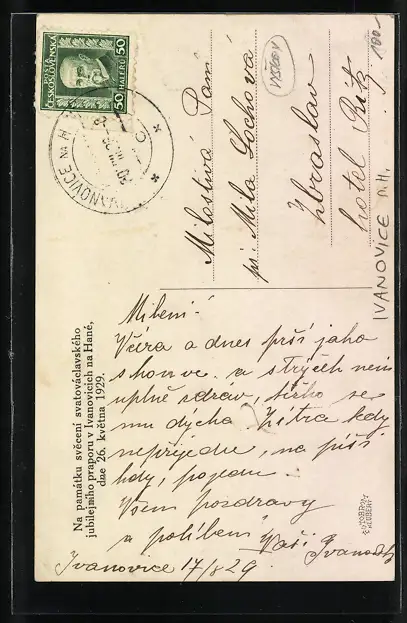 POŠTA
ČESKOSLOVENSKÁ
50 HALÉŘŮ 50
IVANOVICE NA H
Milostivá Paní
pí. Míla Sochová
Zbraslav
hotel Ritz
100-
VYŠKOV
IVANOVICE n.H.
Na památku svěcení svatováclavského
jubilejního praporu v Ivanovicích na Hané,
dne 26. května 1929.
Milení!
Včera a dnes prší jako
s konve. a strýček není
úplně zdráv, těžko se
mu dýchá. Zítra kdy
nepřijedu, na píší
kdy, pojedu.
Všem pozdravy
a políbení Vaši
Ivanovice 17/8 29.
FOTOBROM